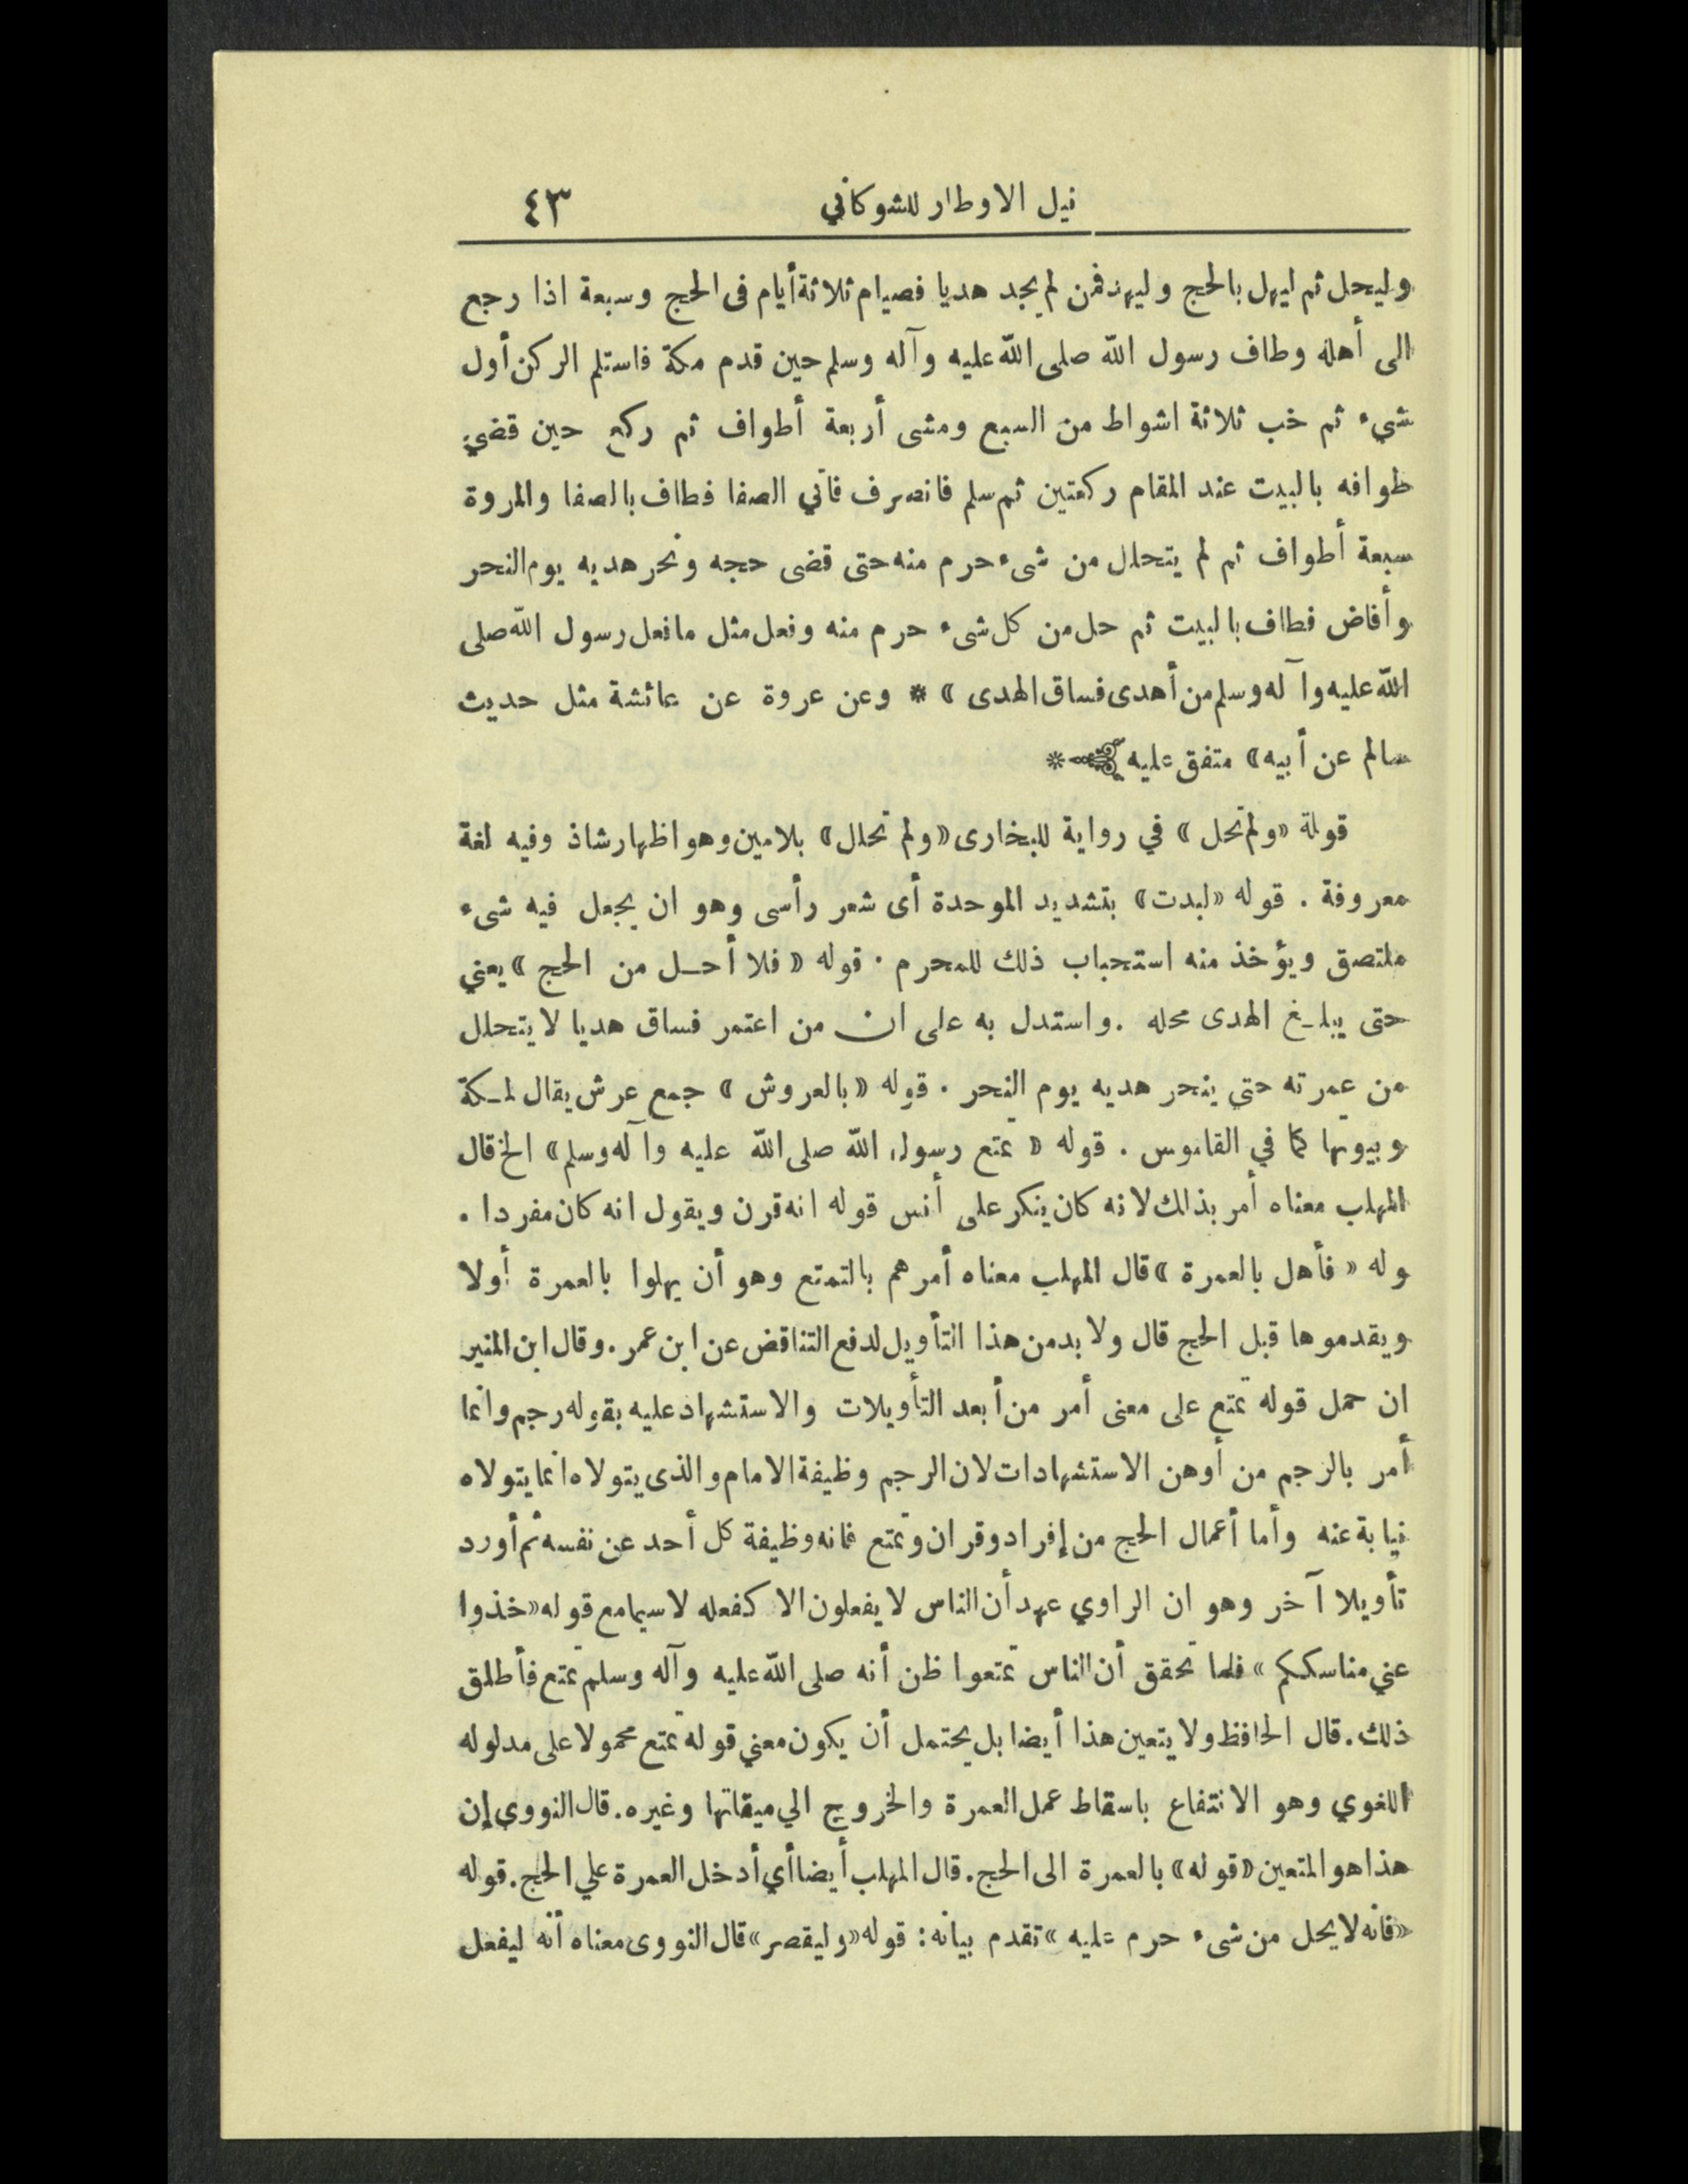 نيل الاوطار للشوكاني ٤٣
وليحل ثم ليهل بالحج وليهد فمن لم يجد هديا فصيام ثلاثة أيام فى الحج وسبعة اذا رجع
الى أهله وطاف رسول الله صلى الله عليه وآله وسلم حين قدم مكة فاستلم الركن أول
شيء ثم خب ثلاثة اشواط من السبع ومشى أربعة أطواف ثم ركع حين قضي
طوافه بالبيت عند المقام ركعتين ثم سلم فانصرف فأتي الصفا فطاف بالصفا والمروة
سبعة أطواف ثم لم يتحلل من شىء حرم منه حتى قضى حجه ونحر هديه يوم النحر
وأفاض فطاف بالبيت ثم حل من كل شىء حرم منه وفعل مثل مافعل رسول الله صلى
الله عليه وآله وسلم من أهدى فساق الهدى » * وعن عروة عن عائشة مثل حديث
سالم عن أبيه » متفق عليه *
قولة «ولم تحل » في رواية للبخارى «ولم تحلل» بلامين وهو اظهار شاذ وفيه لغة
معروفة . قوله «لبدت» بتشديد الموحدة أى شعر رأسى وهو ان يجعل فيه شىء
ملتصق ويؤخذ منه استحباب ذلك للمحرم . قوله «فلا أحــل من الحج » يعني
حتى يبلـغ الهدى محله . واستدل به على ان من اعتمر فساق هديا لا يتحلل
من عمرته حتي ينحر هديه يوم النحر . قوله «بالعروش » جمع عرش يقال لمـكة
وبيوتها كما في القاموس . قوله « تمتع رسول الله صلى الله عليه وآله وسلم» الخ قال
المهلب معناه أمر بذلك لانه كان ينكر على أنس قوله انه قرن ويقول انه كان مفردا .
وله « فأهل بالعمرة » قال المهلب معناه أمرهم بالتمتع وهو أن يهلوا بالعمرة أولا
ويقدموها قبل الحج قال ولا بد من هذا التأويل لدفع التناقض عن ابن عمر . وقال ابن المنير
ان حمل قوله تمتع على معنى أمر من أبعد التأويلات والاستشهاد عليه بقوله رجم وانما
أمر بالرجم من أوهن الاستشهادات لان الرجم وظيفة الامام والذى يتولاه انما يتولاه
نيابة عنه وأما أعمال الحج من إفراد وقران وتمتع فانه وظيفة كل أحد عن نفسه ثم أورد
تأويلا آخر وهو ان الراوي عهد أن الناس لا يفعلون الا كفعله لا سيما مع قوله «خذوا
عني مناسككم » فلما تحقق أن الناس تمتعوا ظن أنه صلى الله عليه وآله وسلم تمتع فأطلق
ذلك . قال الحافظ ولا يتعين هذا أيضا بل يحتمل أن يكون معني قوله تمتع محمولا على مدلوله
اللغوي وهو الانتفاع باسقاط عمل العمرة والخروج الي ميقاتها وغيره . قال النووي إن
هذا هو المتعين «قوله» بالعمرة الى الحج . قال المهلب أيضا أي أدخل العمرة علي الحج . قوله
«فانه لا يحل من شىء حرم عليه » تقدم بيانه : قوله «وليقصر» قال النووى معناه أنه ليفعل